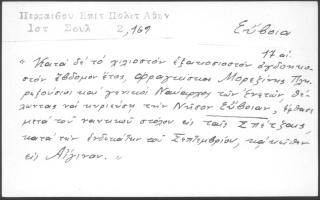 Περραιβου Επιτ Πολιτ Αθην
Ιστ Σουλ 2,169
Εὔβοια
17 αἰ.
« Κατὰ δὲ τὸ χιλιοστὸν ἑξακοσιοστὸν ὀγδοηκο-
στὸν ἕβδομον ἔτος, Φραγκίσκος Μορεζίνης Πρι
καὶ γενικὸς Ναύαρχος τῶν Ἑνετῶν θέ-
λοντας νὰ κυριεύσῃ τὴν Νῆσον Εὔβοιαν, ἔφθασε
μετὰ τοῦ ναυτικοῦ στόλου εἰς ταῖς Σπέτζαις
κατὰ τὴν ἑνδεκάτην τοῦ Σεπτεμβρίου, κἀκεῖθεν
εἰς Αἴγιναν. »